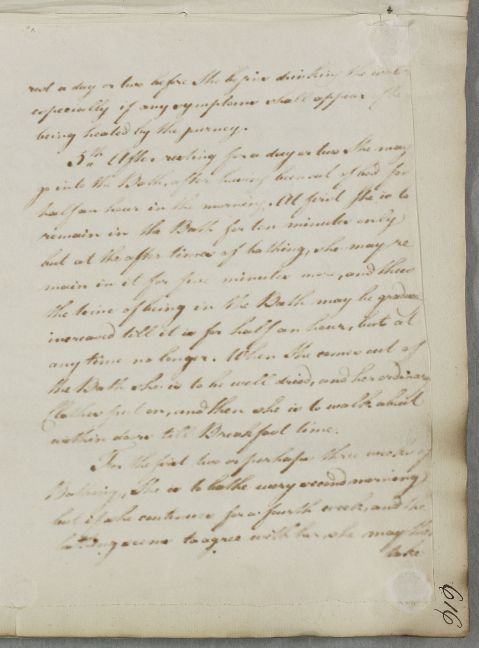 rest a day or two before She begins drinking the water
especially if any symptoms shall appear of her
being heated by the purney.
5th. After resting for a day or two She may
go into the Bath, after having been out of bed for
half an hour in the morning. At first She is to
remain in the Bath for ten minutes only
but at the after times of bathing, she may re
main in it for five minutes more, and thus
the time of being in the Bath may be gradua
increased till it is for half an hour, but at
any time no longer. When She comes out of
the Bath she is to be well dried, and her ordinary
Clothes put on, and then she is to walk about
within doors till Breakfast time.
For the first two or perhaps three weeks of
Bathing, She is to bathe every second morning
but if she continues for a fourth week, and the
bathing seems to agree with her, she may then
take
919